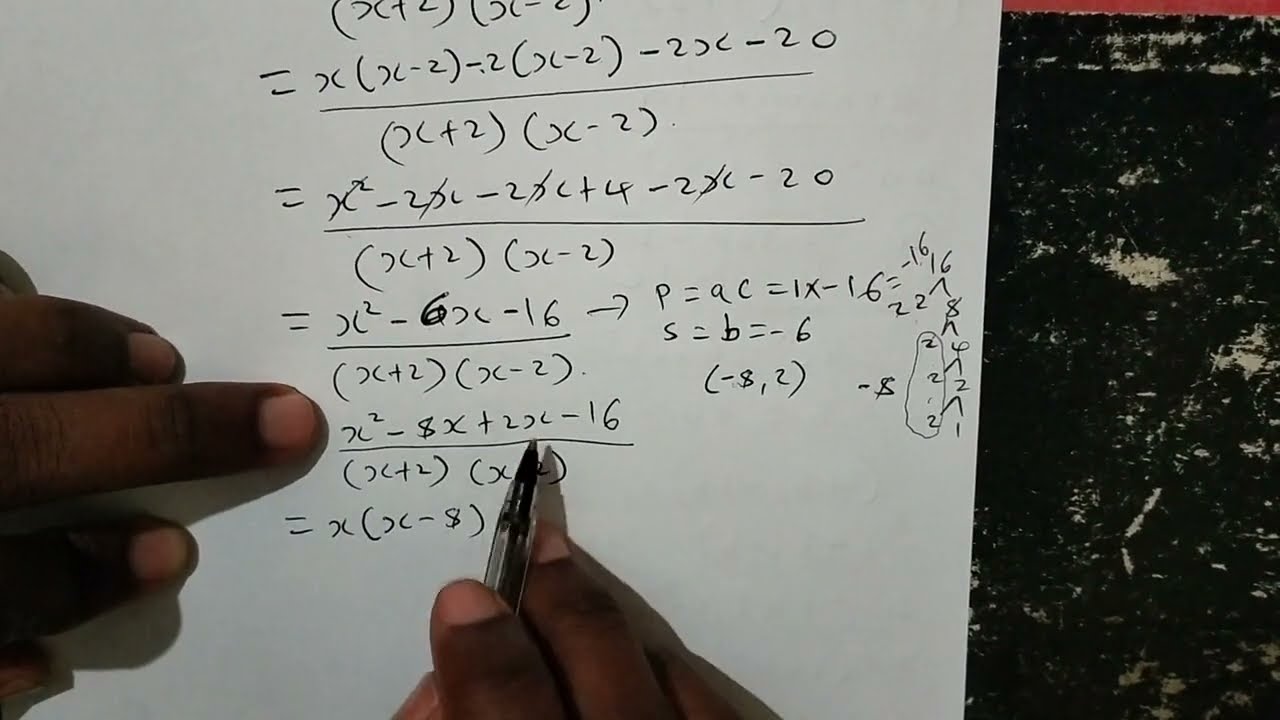 (x+2)(x-2)
= x(x-2)-2(x-2)-2x-20
(x+2)(x-2).
= x²-2x-2x+4-2x-20
(x+2)(x-2)
= x²-6x-16 → P=ac=1x-16=-16
(x+2)(x-2).
s=b=-6
(-8,2)
x²-8x+2x-16
(x+2)(x-2)
= x(x-8)
16
2 2 8
2 4
2 2
2 1
-8